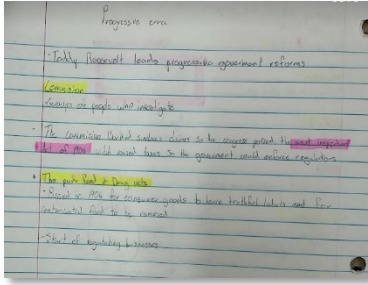 Progressive era
- Teddy Roosevelt leads progressive goverment reforms
Commission
Groups of people who investigate
- The Commission Backed Sinclairs claims so the congress passed the meat inspection
Act of 1906 which raised taxes so the government could enforce regulations
• The pure Food & Drug acts
- Passed in 1906 for consumer goods to have truthful labels and for
food to be removed
- Start of regulating businesses